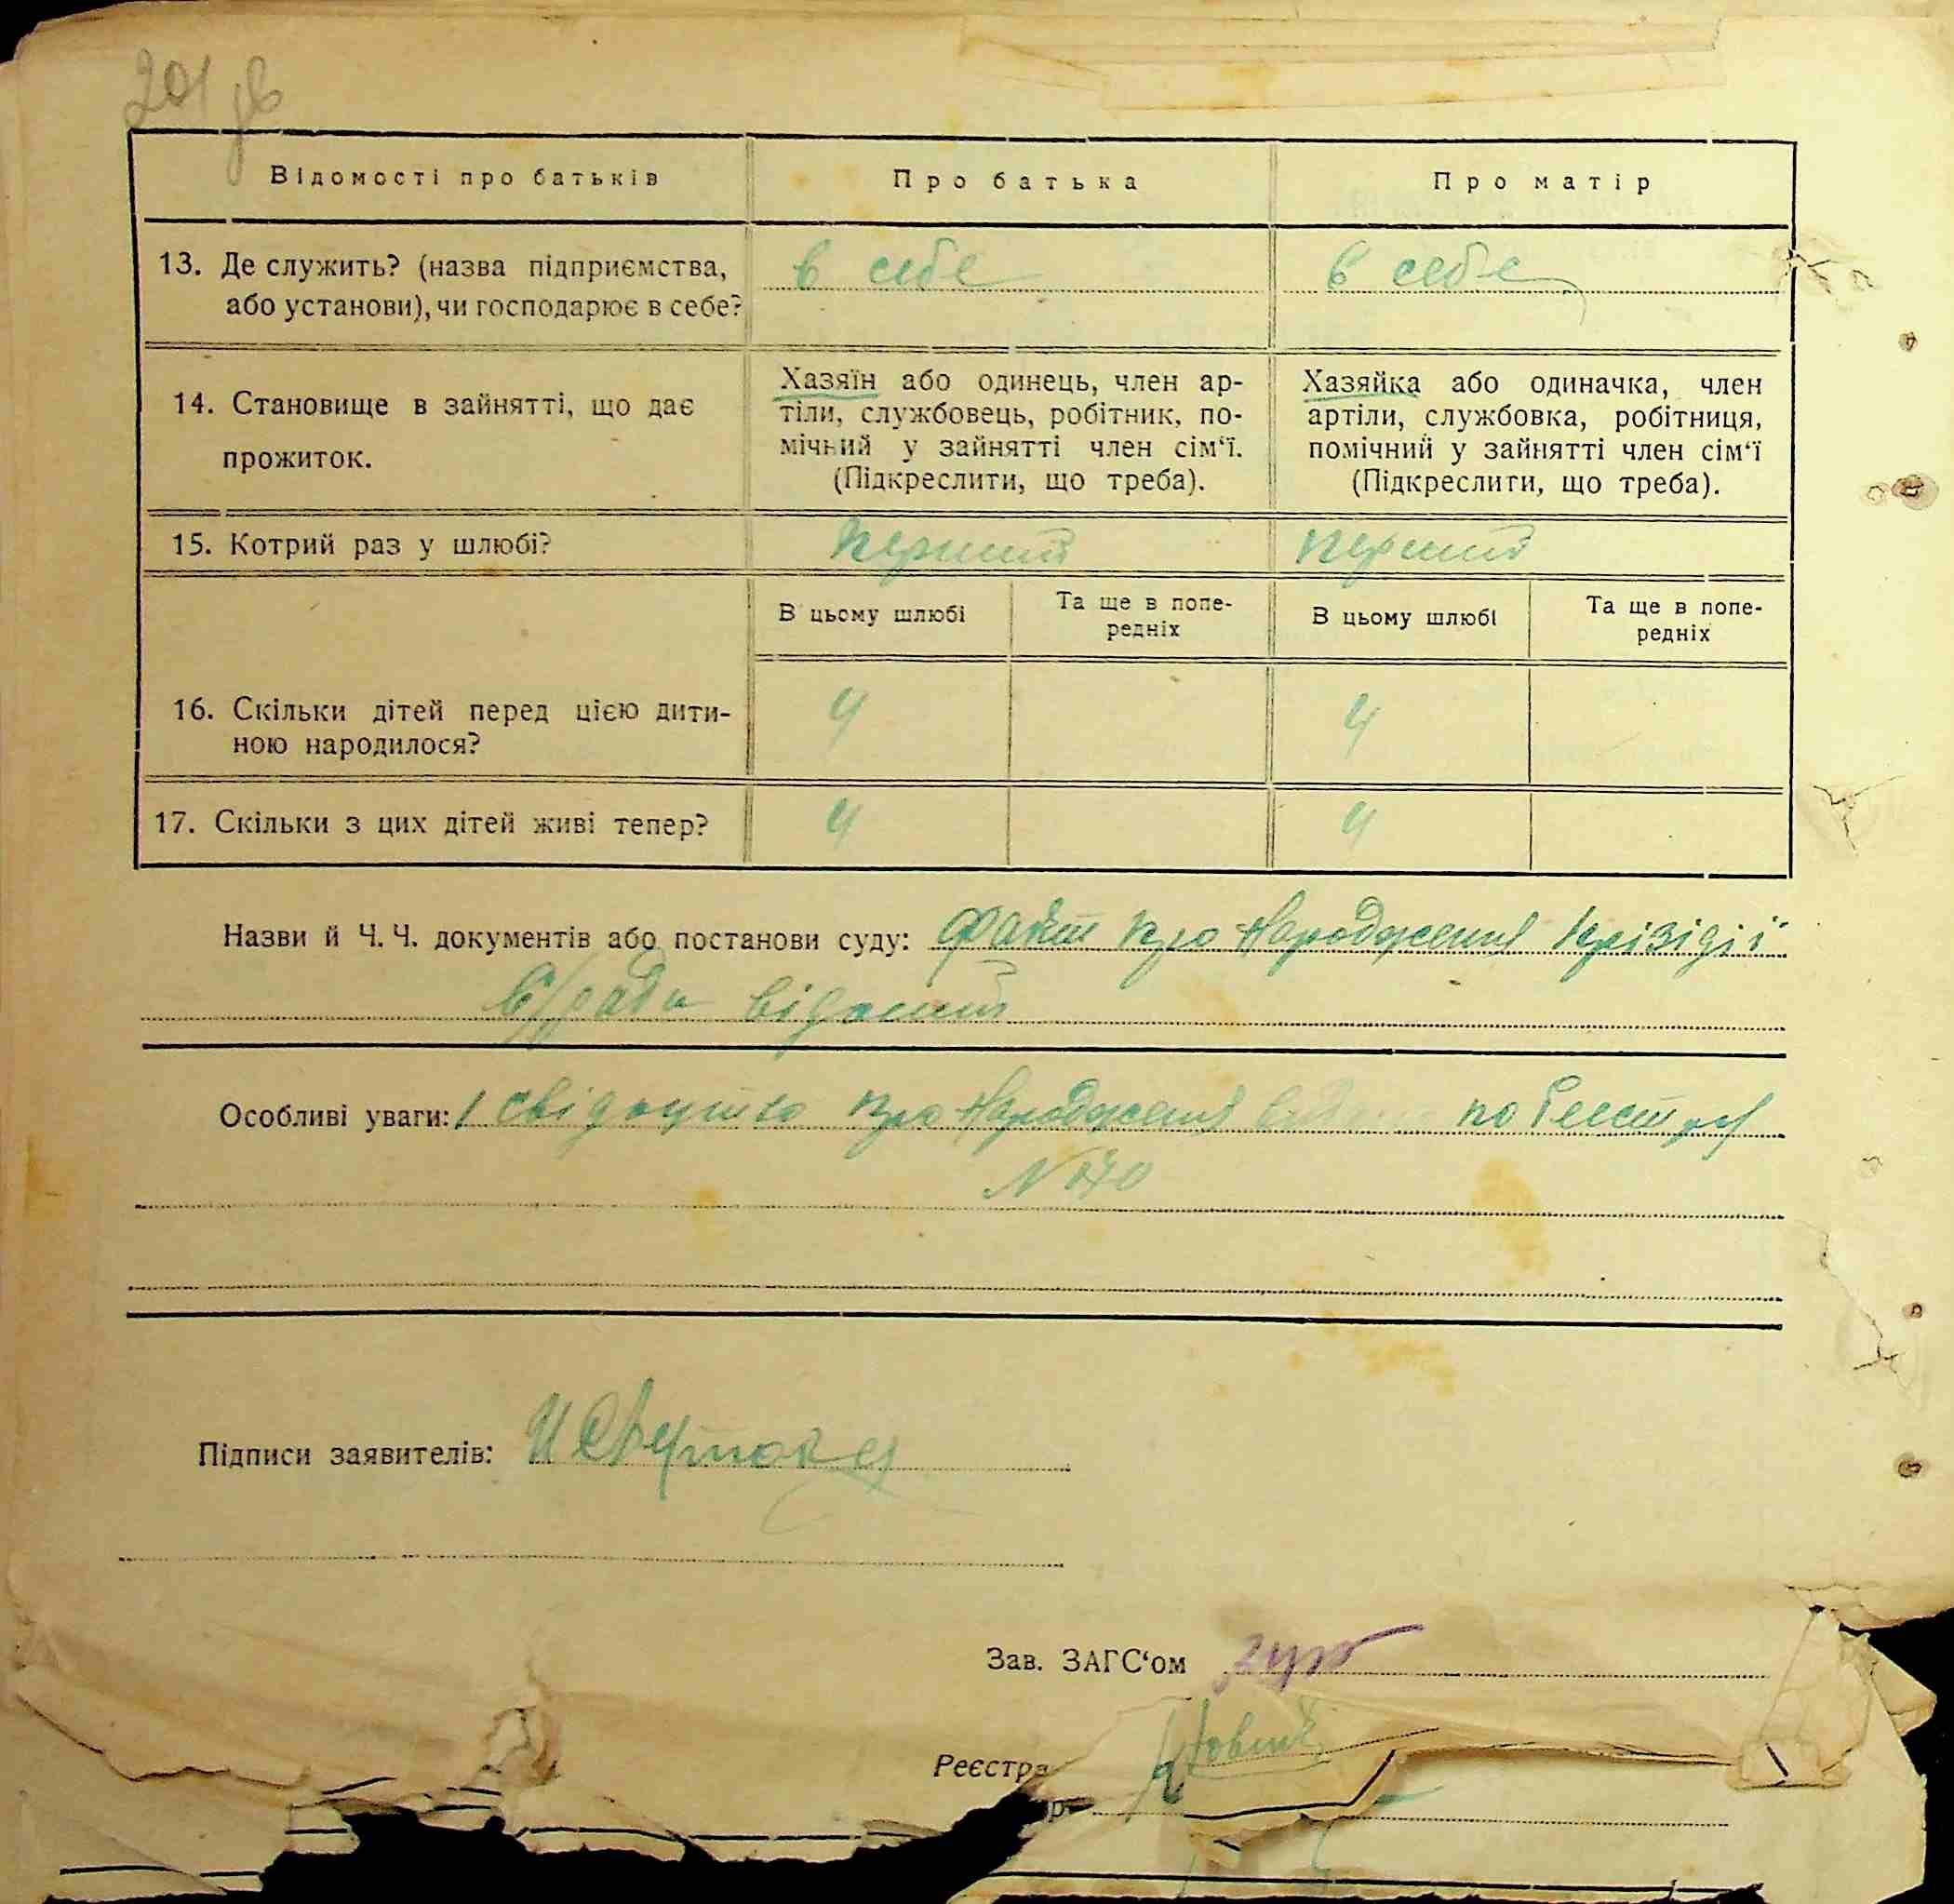 201 зв
Відомості про батьків
Про батька
Про матір
13. Де служить? (назва підприємства,
або установи), чи господарює в себе?
в себе
в себе
14. Становище в зайнятті, що дає
прожиток.
Хазяїн або одинець, член ар-
тіли, службовець, робітник, по-
мічний у зайнятті член сім‘ї.
(Підкреслити, що треба).
Хазяйка або одиначка, член
артіли, службовка, робітниця,
помічний у зайнятті член сім‘ї
(Підкреслити, що треба).
15. Котрий раз у шлюбі?
перший
перший
В цьому шлюбі
Та ще в попе-
редніх
В цьому шлюбі
Та ще в попе-
редніх
16. Скільки дітей перед цією дити-
ною народилося?
4
4
17. Скільки з цих дітей живі тепер?
4
4
Назви й Ч. Ч. документів або постанови суду: Факт про народження прізідії
с/ради відомий
Особливі уваги: про народження по реестру
N 070
Підписи заявителів:
Зав. ЗАГС‘ом
Реєстра